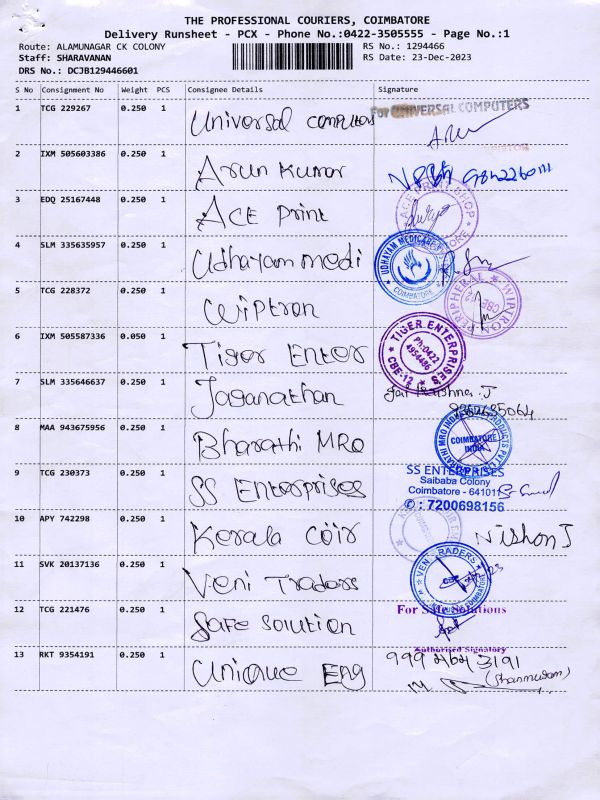 THE PROFESSIONAL COURIERS, COIMBATORE
Delivery Runsheet - PCX - Phone No.:0422-3505555 - Page No.:1
Route: ALAMUNAGAR CK COLONY RS No.: 1294466
Staff: SHARAVANAN RS Date: 23-Dec-2023
DRS No.: DCJB129446601
S No Consignment No Weight PCS Consignee Details Signature
1 TCG 229267 0.250 1 Universal computers For UNIVERSAL COMPUTERS
2 IXM 505603386 0.250 1 Arun Kumar
3 EDQ 25167448 0.250 1 ACE Print
4 SLM 335635957 0.250 1 Udhayam medi UDHAYAM MEDICARE COIMBATORE
5 TCG 228372 0.250 1 Wiptron PERIPHERAL WIPTRO CBE
6 IXM 505587336 0.050 1 Tiger Enter TIGER ENTERPRISES Ph:0422 4954486 CBE-12
7 SLM 335646637 0.250 1 Jaganathan
8 MAA 943675956 0.250 1 Bharathi MRO COIMBATORE INDIA
9 TCG 230373 0.250 1 SS Enterprises SS ENTERPRISES
Saibaba Colony
Coimbatore - 641011
✆ : 7200698156
10 APY 742298 0.250 1 Kerala Coir Nishon J
11 SVK 20137136 0.250 1 Veni Tradors
12 TCG 221476 0.250 1 Safe Solution For Safe Solutions
Authorised Signatory
13 RKT 9354191 0.250 1 Unique Eng
(Shanmugam)